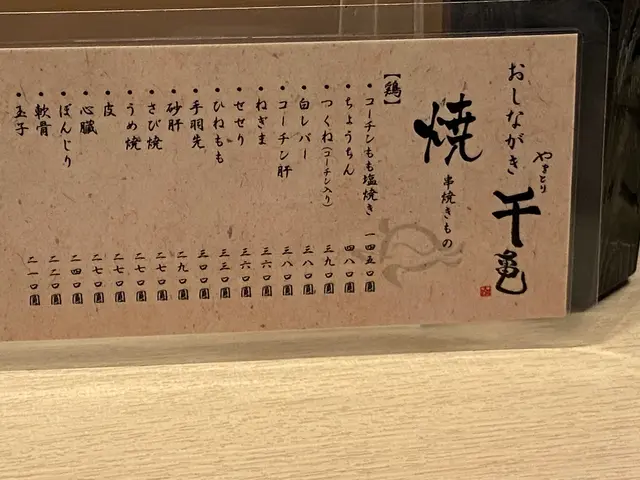 おしながき
やきとり
干亀
焼
串焼きもの
【鶏】
・コーチンもも塩焼き 一四五〇圓
・ちょうちん 四八〇圓
・つくね(コーチン入り) 三九〇圓
・白レバー 三八〇圓
・コーチン肝 三八〇圓
・ねぎま 三六〇圓
・せせり 三六〇圓
・ひねもも 三三〇圓
・手羽先 三〇〇圓
・砂肝 二九〇圓
・さび焼 二七〇圓
・うめ焼 二七〇圓
・皮 二七〇圓
・心臓 二四〇圓
・ぼんじり 二二〇圓
・軟骨 二一〇圓
・玉子